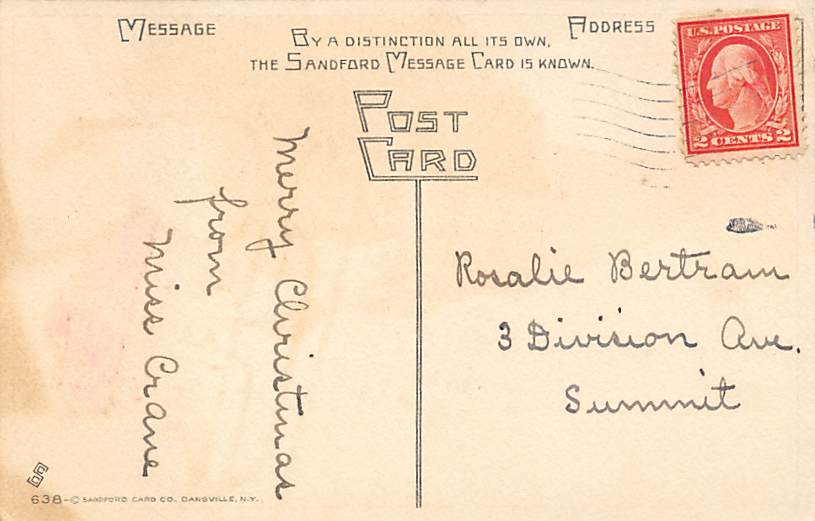 MESSAGE
BY A DISTINCTION ALL ITS OWN,
THE SANDFORD MESSAGE CARD IS KNOWN.
ADDRESS
U.S. POSTAGE
2 CENTS 2
POST
CARD
Merry Christmas
from
Miss Crane
Rosalie Bertram
3 Division Ave.
Summit
638-© SANDFORD CARD CO. DANSVILLE, N.Y.